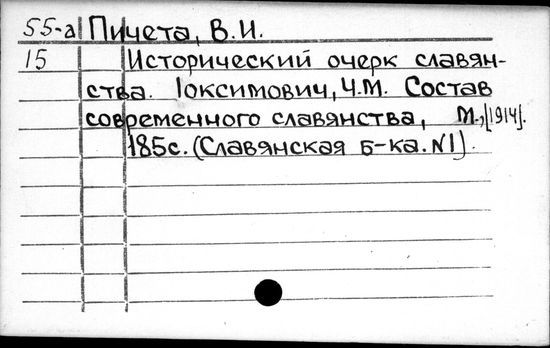 55-а Пичета, В.И.
15 Исторический очерк славян-
ства. Іоксимович, Ч.М. Состав
современного славянства, М., [1914].
185с. (Славянская б-ка. N1).